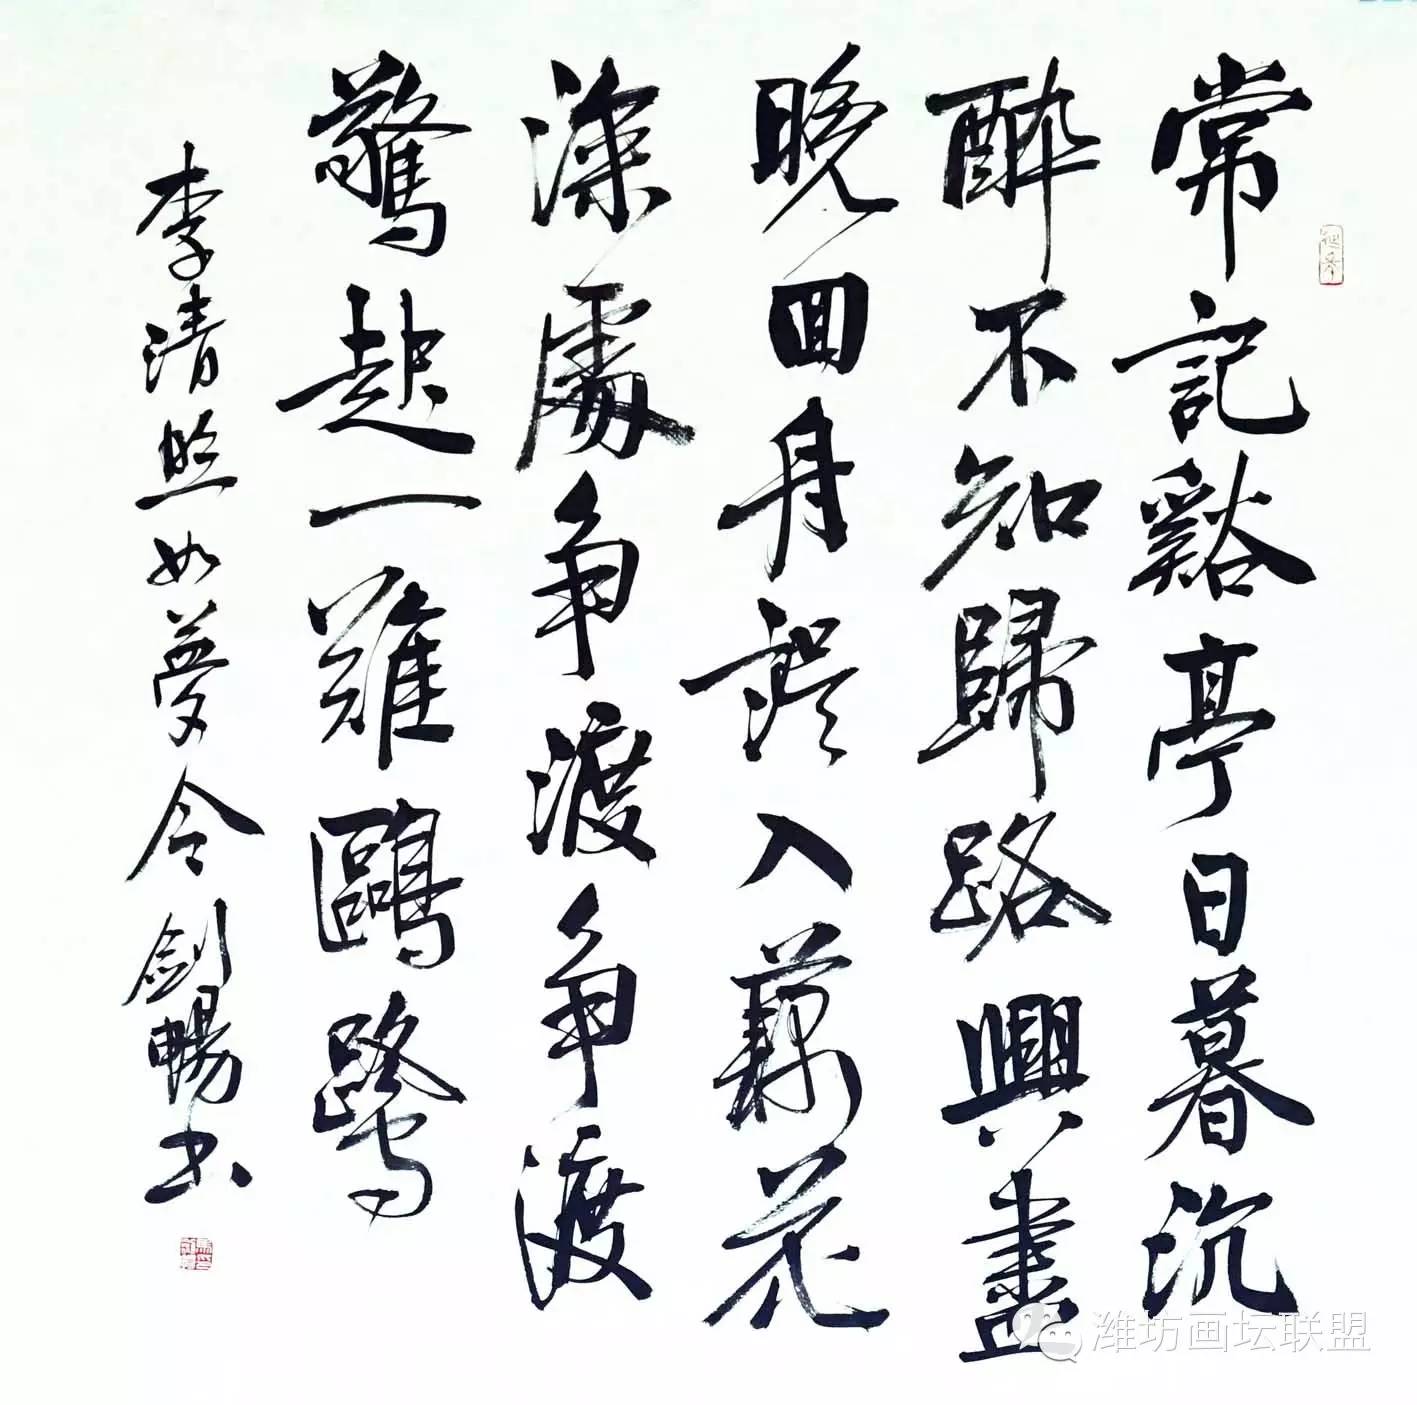 常記谿亭日暮沉
醉不知歸路興盡
晚回舟誤入藕花
深處争渡争渡
驚起一灘鷗鷺
李清照如夢令劍暢书
潍坊画坛联盟